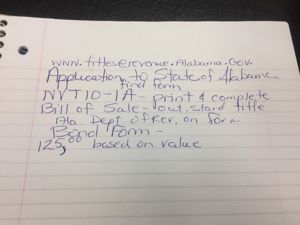 www.titles@revenue.Alabama.Gov.
Application to State of Alabama
find form
NVT10-1A - print & complete
Bill of Sale - out. stand title
Ala. Dept of Rev. on form
Bond Form -
125,00 based on value